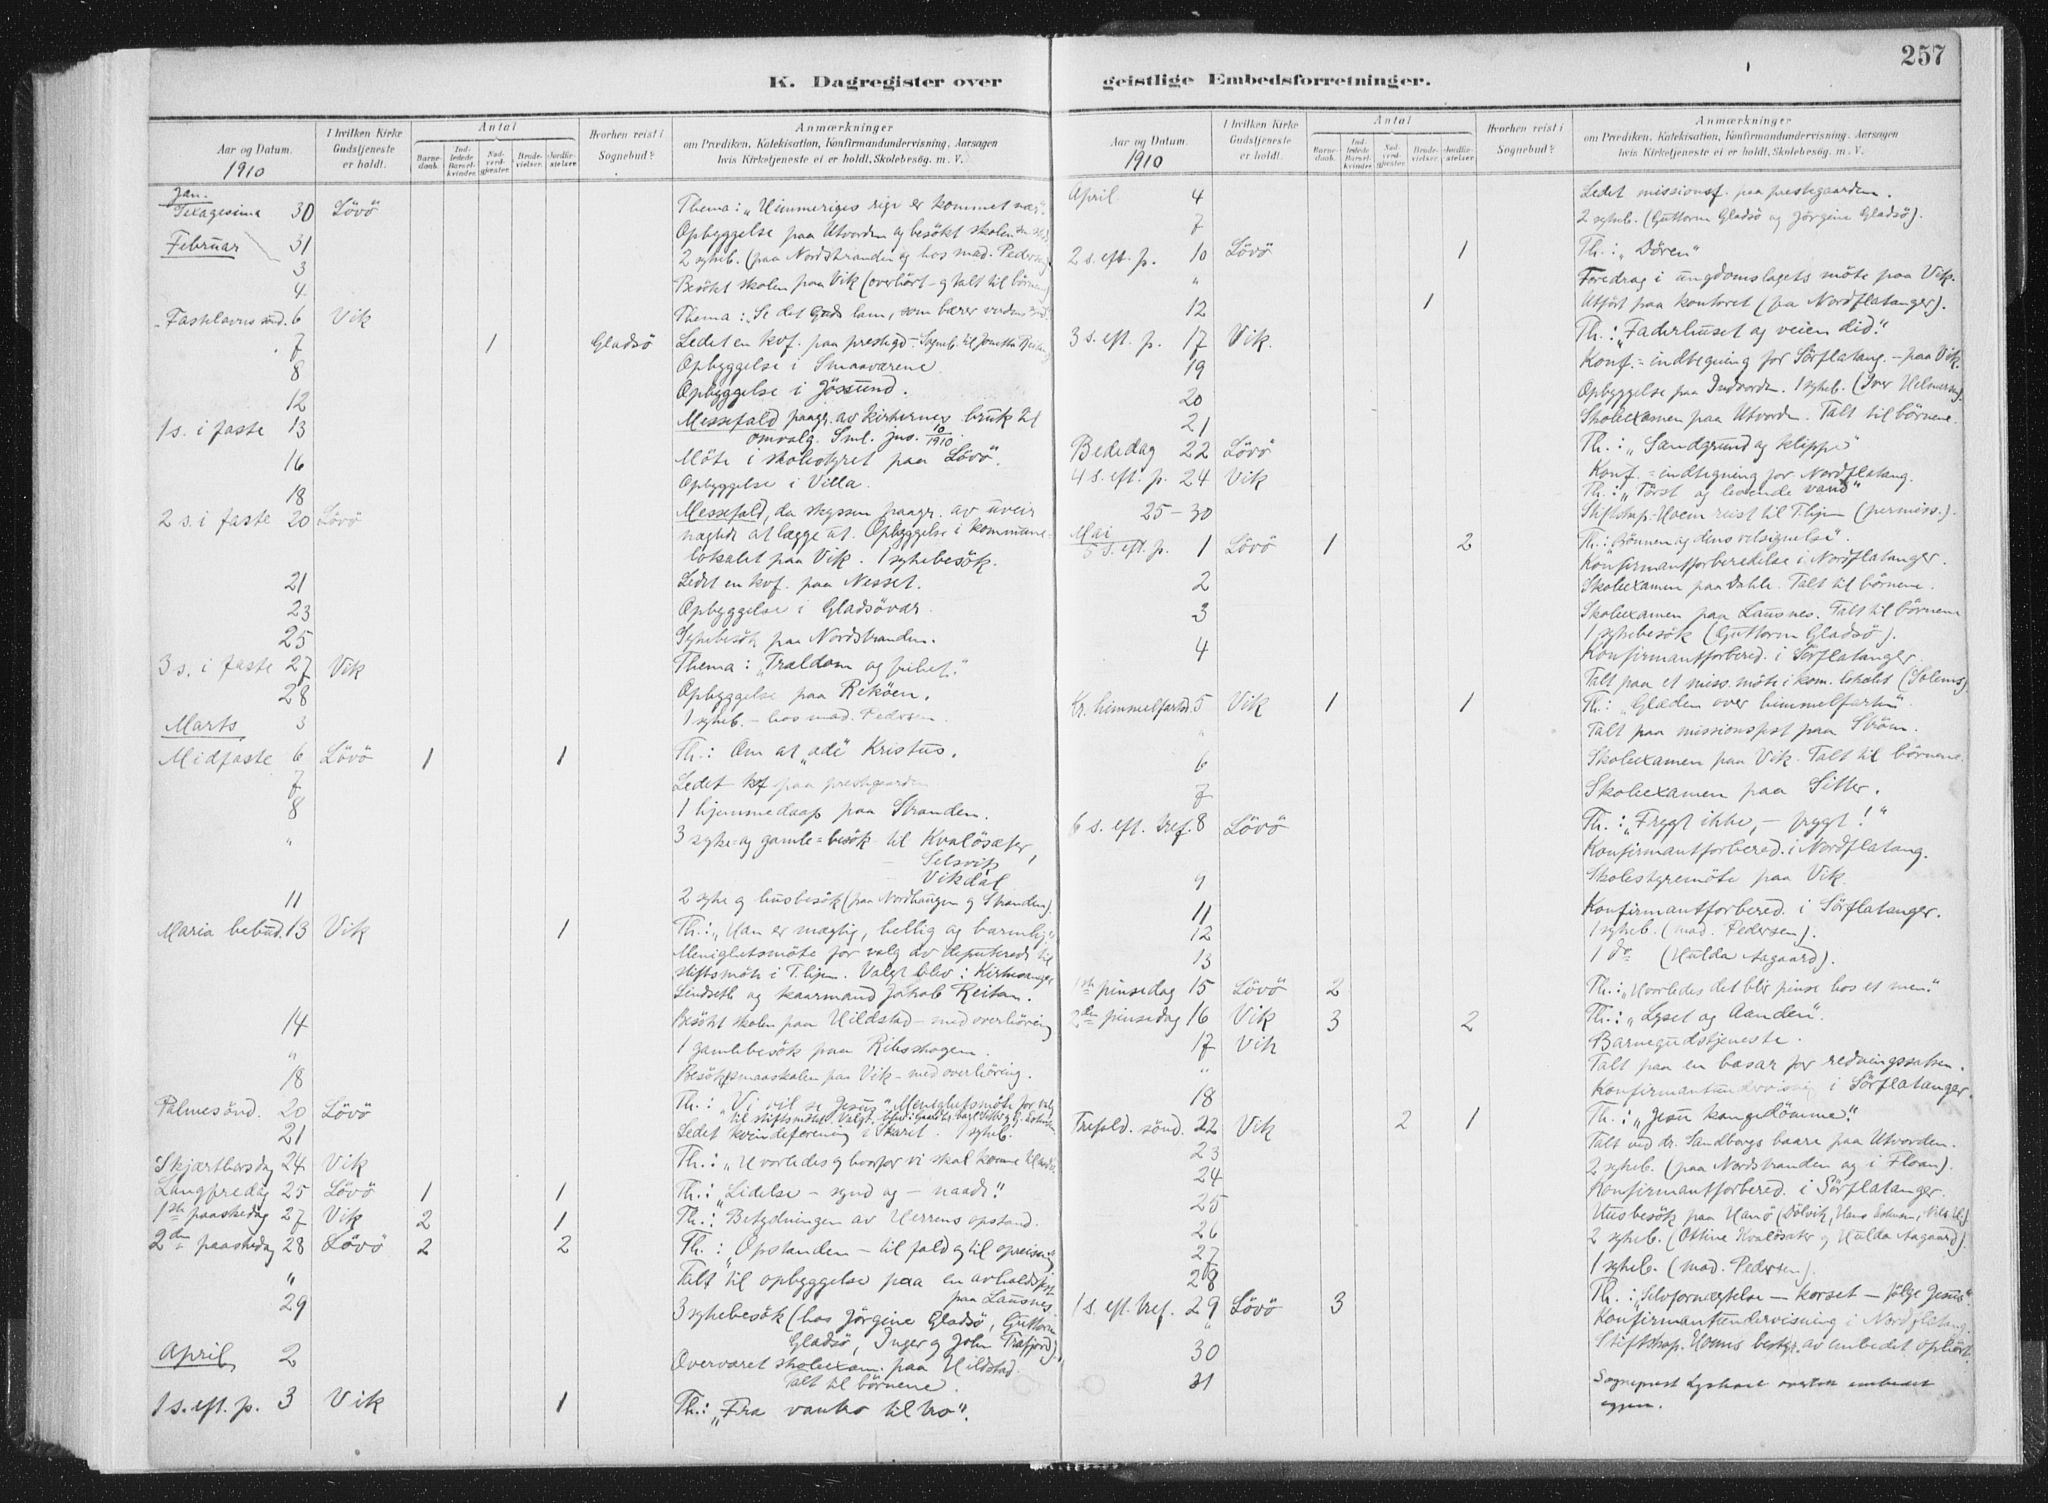 257
K. Dagregister over geistlige Embedsforretninger.
Aar og Datum.
1910
I hvilken Kirke Gudstjeneste er holdt.
Antal
Barne-daab.
Ind-ledede Barsel-kvinder.
Nad-verd-gjester.
Brude-vielser.
Jordfæ-stelser
Hvorhen reist i Sognebud?
Anmærkninger
om Prædiken, Katekisation, Konfirmandundervisning, Aarsagen hvis Kirketjeneste ei er holdt, Skolebesøg. m. V.
Jan.
Sexagesima 30 Lövö Thema: „Himmeriges rige er kommet nær".
31 Opbyggelse paa Utvorden og besökt skolen
Februar 3 2 sygeb. (paa Nordstranden og hos mad. Pedersen)
4 Besökt skolen paa Vik (overhört - og talt til börnene)
Fastelavns sønd. 6 Vik Thema: „Se det Guds lam, som bærer verdens synd"
7 1 Gladsö Ledet en kvf. paa prestegd -
8 Opbyggelse i Smaaværene.
12 Opbyggelse i Jössund.
1 s. i faste 13 Messefald paagr. av kirkernes bruk til
omvalg. Sml. jvs. 10/1910.
16 Möte i skolestyret paa Lövö.
18 Opbyggelse i Villa.
2 s. i faste 20 Lövö Messefald, da skyssen paagr. av uveir
nægtede at lægge ut. Opbyggelse i kommune-
lokalet paa Vik. 1 sykebesök.
21 Ledet en kvf. paa Nesset.
23 Opbyggelse i Gladsövær.
25 Sykebesök paa Nordstranden.
3 s. i faste 27 Vik Thema: „Trældom og frihet."
28 Opbyggelse paa Reköen.
Marts 3 1 sykeb. - hos mad. Pedersen.
Midfaste 6 Lövö 1 1 Th.: Om at „æde" Kristus.
7 Ledet kvf paa prestegaarden
8 1 hjemmedaap paa Stranden.
" 3 syke- og gamle-besök til Kvalösæter,
Selsvik
Vikdal
11 2 syke og husbesök (paa Nordhaugen og Stranden).
Maria bebud. 13 Vik 1 Th.: „Han er mægtig, hellig og barmhj."
Menighetsmöte for valg av deputerede til
stiftsmöte i T.hjem. Valgt blev: Kirkesanger
Lindseth og kaarmand Jakob Reitan.
14 Besökt skolen paa Hildstad - med overhöring
" 1 gamlebesök paa Ribsskogen.
18 Besökt smaaskolen paa Vik - med overhöring.
Palmesönd. 20 Lövö Th.: „Vi vil se Jesus" Menighetsmöte for valg
til stiftsmötet. Valgt blev:
21 Ledet kvindeforening i Skaret. 1 sykeb.
Skjærthorsdag 24 Vik Th.: „Hvorledes og hvorfor vi skal komme
Langfredag 25 Lövö 1 1 Th.: „Lidelse - synd og - naade."
1ste paaskedag 27 Vik 2 1 Th.: Betydningen av Herrens opstand.
2den paaskedag 28 Lövö 2 2 Th.: „Opstanden - til fald og til opreisn."
" Talt til opbyggelse paa en avholdsfest
paa Lausnes.
29 3 sykebesök (hos Jörgine Gladsö, Guttorm
Gladsö, Inger og John Træfjord).
April 2 Overværet skoleexam. paa Hildstad.
Talt til börnene.
1 s. eft. p. 3 Vik 1 Th.: „Fra vantro til tro".
Aar og Datum.
1910
I hvilken Kirke Gudstjeneste er holdt.
Antal
Barne-daab.
Ind-ledede Barsel-kvinder.
Nad-verd-gjester.
Brude-vielser.
Jordfæ-stelser
Hvorhen reist i Sognebud?
Anmærkninger
om Prædiken, Katekisation, Konfirmandundervisning, Aarsagen hvis Kirketjeneste ei er holdt, Skolebesøg. m. V.
April 4 Ledet missionsf. paa prestegaarden.
7 2 sykeb. (Guttorm Gladsö og Jörgine Gladsö).
2 s. eft. p. 10 Lövö 1 Th.: „Dören"
" Foredrag i ungdomslagets möte paa Vik.
12 1 Utfört paa kontoret (fra Nordflatanger).
3 s. eft. p. 17 Vik. Th.: „Faderhuset og veien did."
19 Konf.-indtegning for Sörflatang. - paa Vik.
20 Opbyggelse paa Indvorden. 1 sykeb. (Iver
21 Skoleexamen paa Utvorden. Talt til börnene.
Bededag 22 Lövö Th.: „Sandgrund og klippe"
Konf.-indtegning for Nordflatang.
4 s. eft. p. 24 Vik Th.: „Törst og levende vand"
25-30 Stiftskap. Hoem reist til T.hjem (permiss.).
Mai
5 s. eft. p. 1 Lövö 1 2 Th.: „Bönnen og dens velsignelse".
Konfirmantforberedelse i Nordflatanger.
2 Skoleexamen paa Dahle. Talt til börnene.
3 Skoleexamen paa Lausnes. Talt til börnene
1 sykebesök (Guttorm Gladsö).
4 Konfirmantforbered. i Sörflatanger.
Talt paa et miss. möte i kom. lokalet (Solems).
Kr. himmelfartsd. 5 Vik 1 1 Th.: „Glæden over himmelfarten"
" Talt paa missionsfest paa Ström.
6 Skoleexamen paa Vik. Talt til börnene.
7 Skoleexamen paa Sitter.
6 s. eft. tref. 8 Lövö Th.: „Frygt ikke, - frygt!"
Konfirmantforbered. i Nordflatang.
9 Skolestyremöte paa Vik.
11 Konfirmantforbered. i Sörflatanger.
12 1 sykeb. (mad. Pedersen).
13 1 do (Hulda Aagaard).
1ste pinsedag 15 Lövö 2 Th.: „Hvorledes det blir pinse hos et men."
2den pinsedag 16 Vik 3 2 Th.: „Lyset og Aanden".
17 Vik Barnegudstjeneste.
" Talt paa en basar for redningssaken.
18 Konfirmantundervisning i Sörflatanger.
Trefold. sönd. 22 Vik 2 1 Th.: „Jesu kongedömme".
23 Talt ved dr. Sandbergs baare paa Utvorden.
24 2 sykeb. (paa Nordstranden og i Floan).
25 Konfirmantforbered. i Sörflatanger.
26 Husbesök paa Hanö (Dölvik, Hans
27 2 sykeb. (Ottine Kvalösæter og Hulda Aagaard).
28 1 sykeb. (mad. Pedersen).
1 s. eft. tref. 29 Lövö 3 Th.: „Selvfornægtelse - korset - fölge Jesus".
" Konfirmantundervisning i Nordflatang.
30 Stiftskap. Hoems bestyr. av embedet ophört.
31 Sogneprest overtok embedet
igjen.